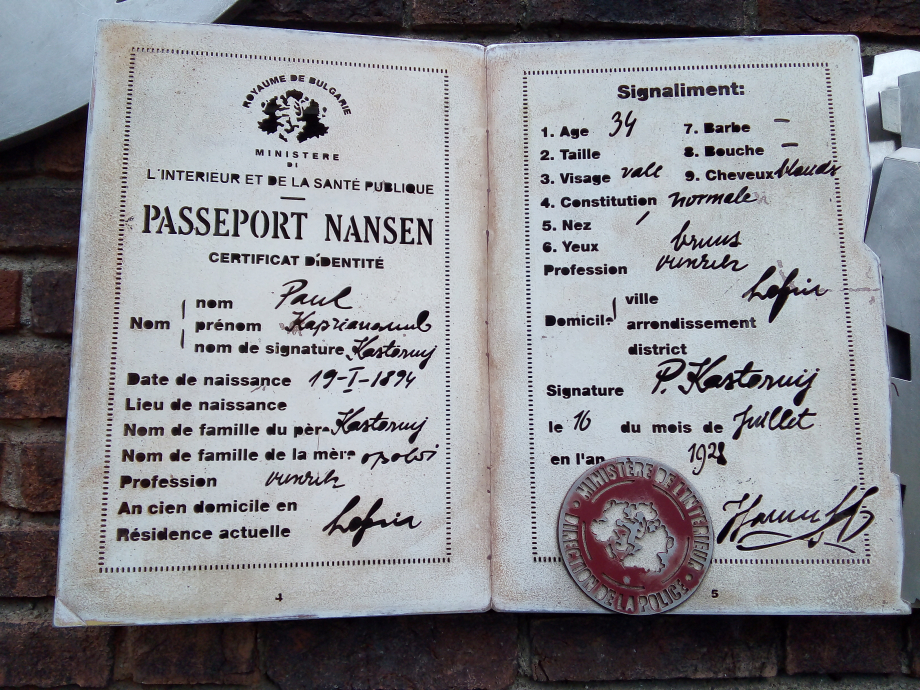 ROYAUME DE BULGARIE
MINISTERE
DI
L'INTERIEUR ET DE LA SANTÉ PUBLIQUE
PASSEPORT NANSEN
CERTIFICAT D'IDENTITÉ
Nom
nom Paul
prénom
nom de signature Kasternij
Date de naissance 19-I-1894
Lieu de naissance
Nom de famille du père Kasternij
Nom de famille de la mère
Profession
An cien domicile en
Résidence actuelle
4
Signaliment:
1. Age 34
2. Taille
3. Visage vale
4. Constitution normale
5. Nez
6. Yeux bruns
Profession
7. Barbe –
8. Bouche –
9. Cheveux blonds
Domicile
ville
arrondissement
district
Signature P. Kasternij
le 16 du mois de Juillet
en l'an 1928
MINISTÈRE DE L'INTERIEUR
DIRECTION DE LA POLICE
5